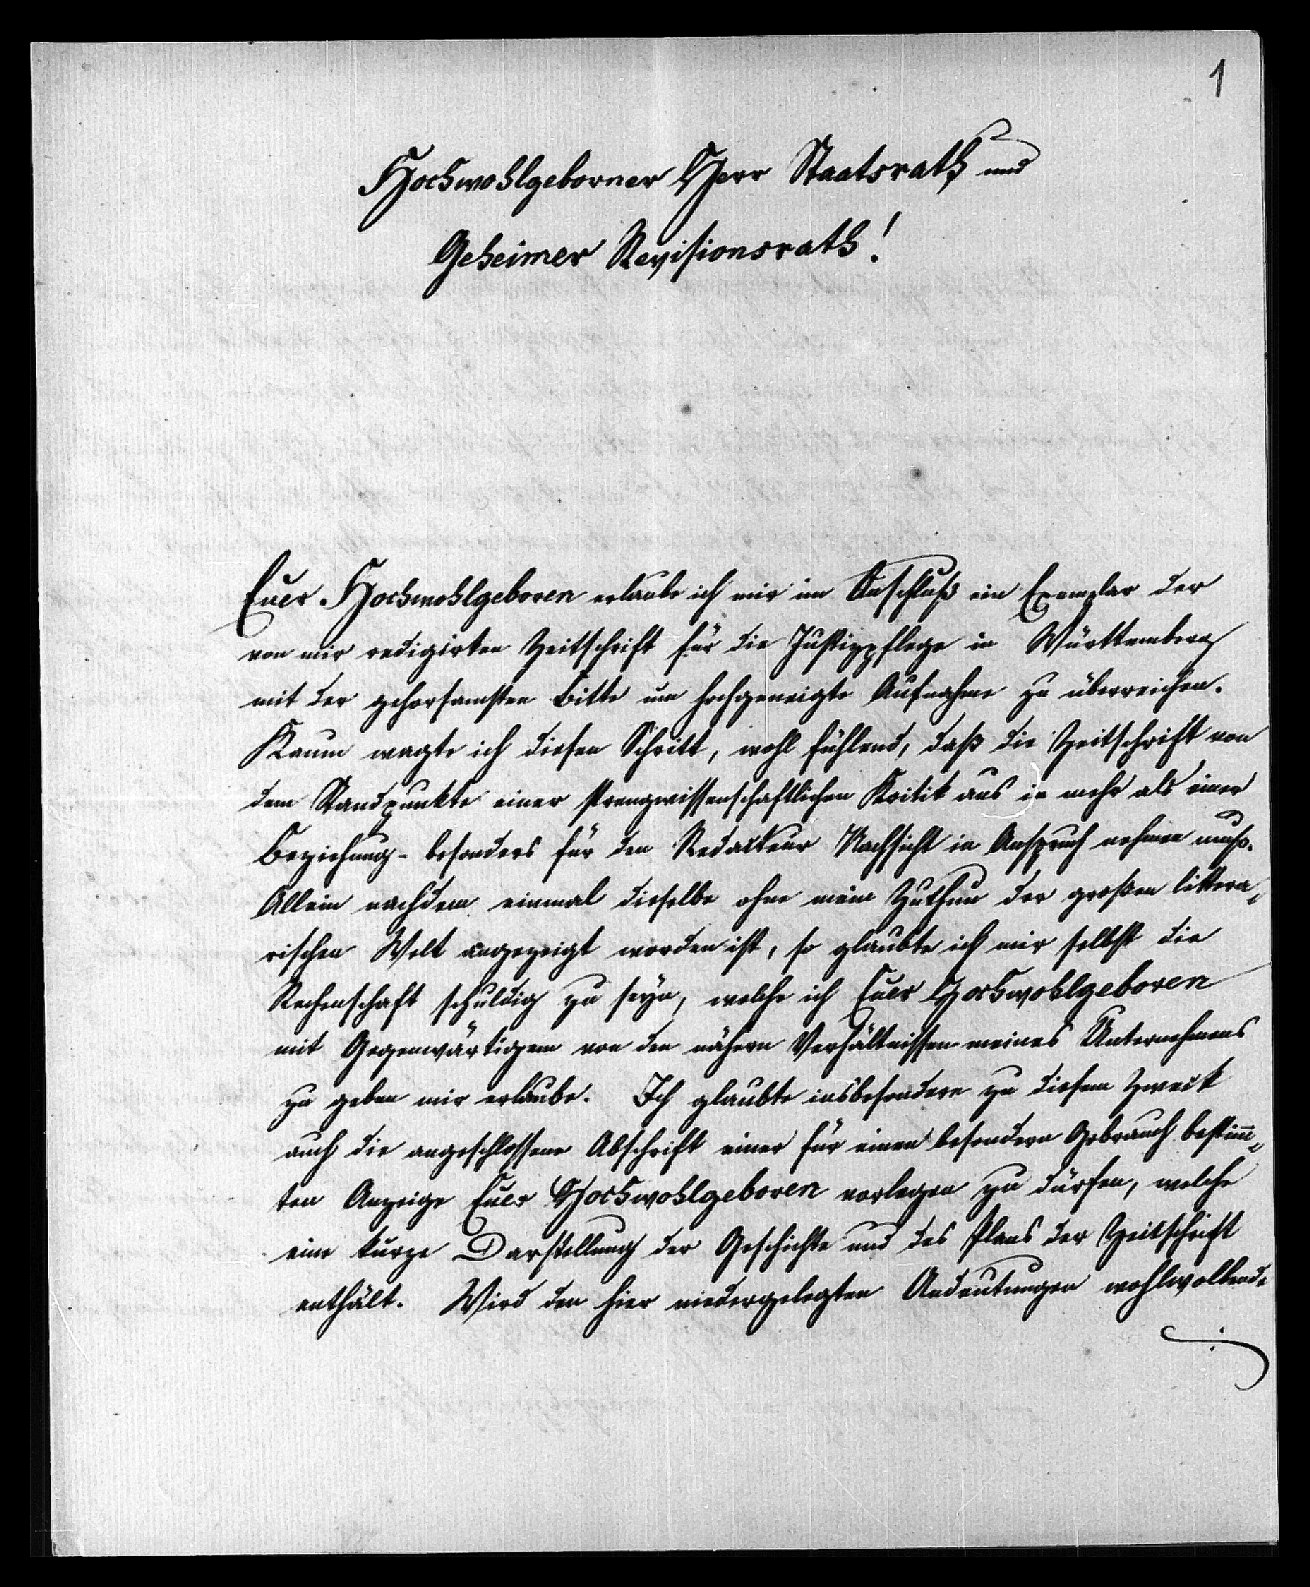 1
Hochwohlgeborner Herr Staatsrath und
Geheimer Revisionsrath!
Euer Hochwohlgeboren erlaube ich mir im Anschluß ein Exemplar der
von mir redigirten Zeitschrift für die Justizpflege in Württemberg
mit der gehorsamsten Bitte um hochgeneigte Aufnahme zu überreichen.
Kaum wagte ich diesen Schritt, wohl fühlend, daß die Zeitschrift von
dem Standpunkte einer strengwissenschaftlichen Kritik aus in mehr als einer
Beziehung - besonders für den Redacteur Nachsicht in Anspruch nehmen muß.
Allein nachdem einmal dieselbe ohne mein Zuthun der großen littera-
rischen Welt angezeigt worden ist, so glaubte ich mir selbst die
Rechenschaft schuldig zu seyn, welche ich Euer Hochwohlgeboren
mit Gegenwärtigem von den nähern Verhältnissen meines Unternehmens
zu geben mir erlaube. Ich glaubte insbesondere zu diesem Zweck
auch die angeschlossene Abschrift einer für einen besondern Gebrauch bestimm-
ten Anzeige Euer Hochwohlgeboren vorlegen zu dürfen, welche
eine kurze Darstellung der Geschichte und des Plans der Zeitschrift
enthält. Wird den hier niedergelegten Andeutungen wohlwollende